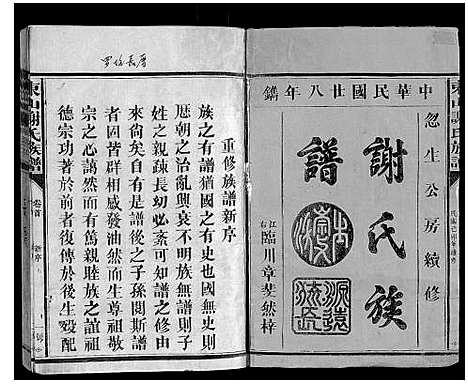 中華民國廿八年鐫
忽生公房續修
謝氏族譜
江右臨川章斐然梓
東山謝氏族譜
重修族譜新序
族之有譜猶國之有史也國無史則
歷朝之治亂興衰不明族無譜則子
姓之親疎長幼必紊可知譜之修由
來尚矣自有是譜後之子孫閱斯譜
者因皆群相感發油然而生尊祖敬
宗之心藹然而有篤親睦族之誼祖
德宗功著於前者復傳於後世發配
東山謝氏族譜
卷首
新序